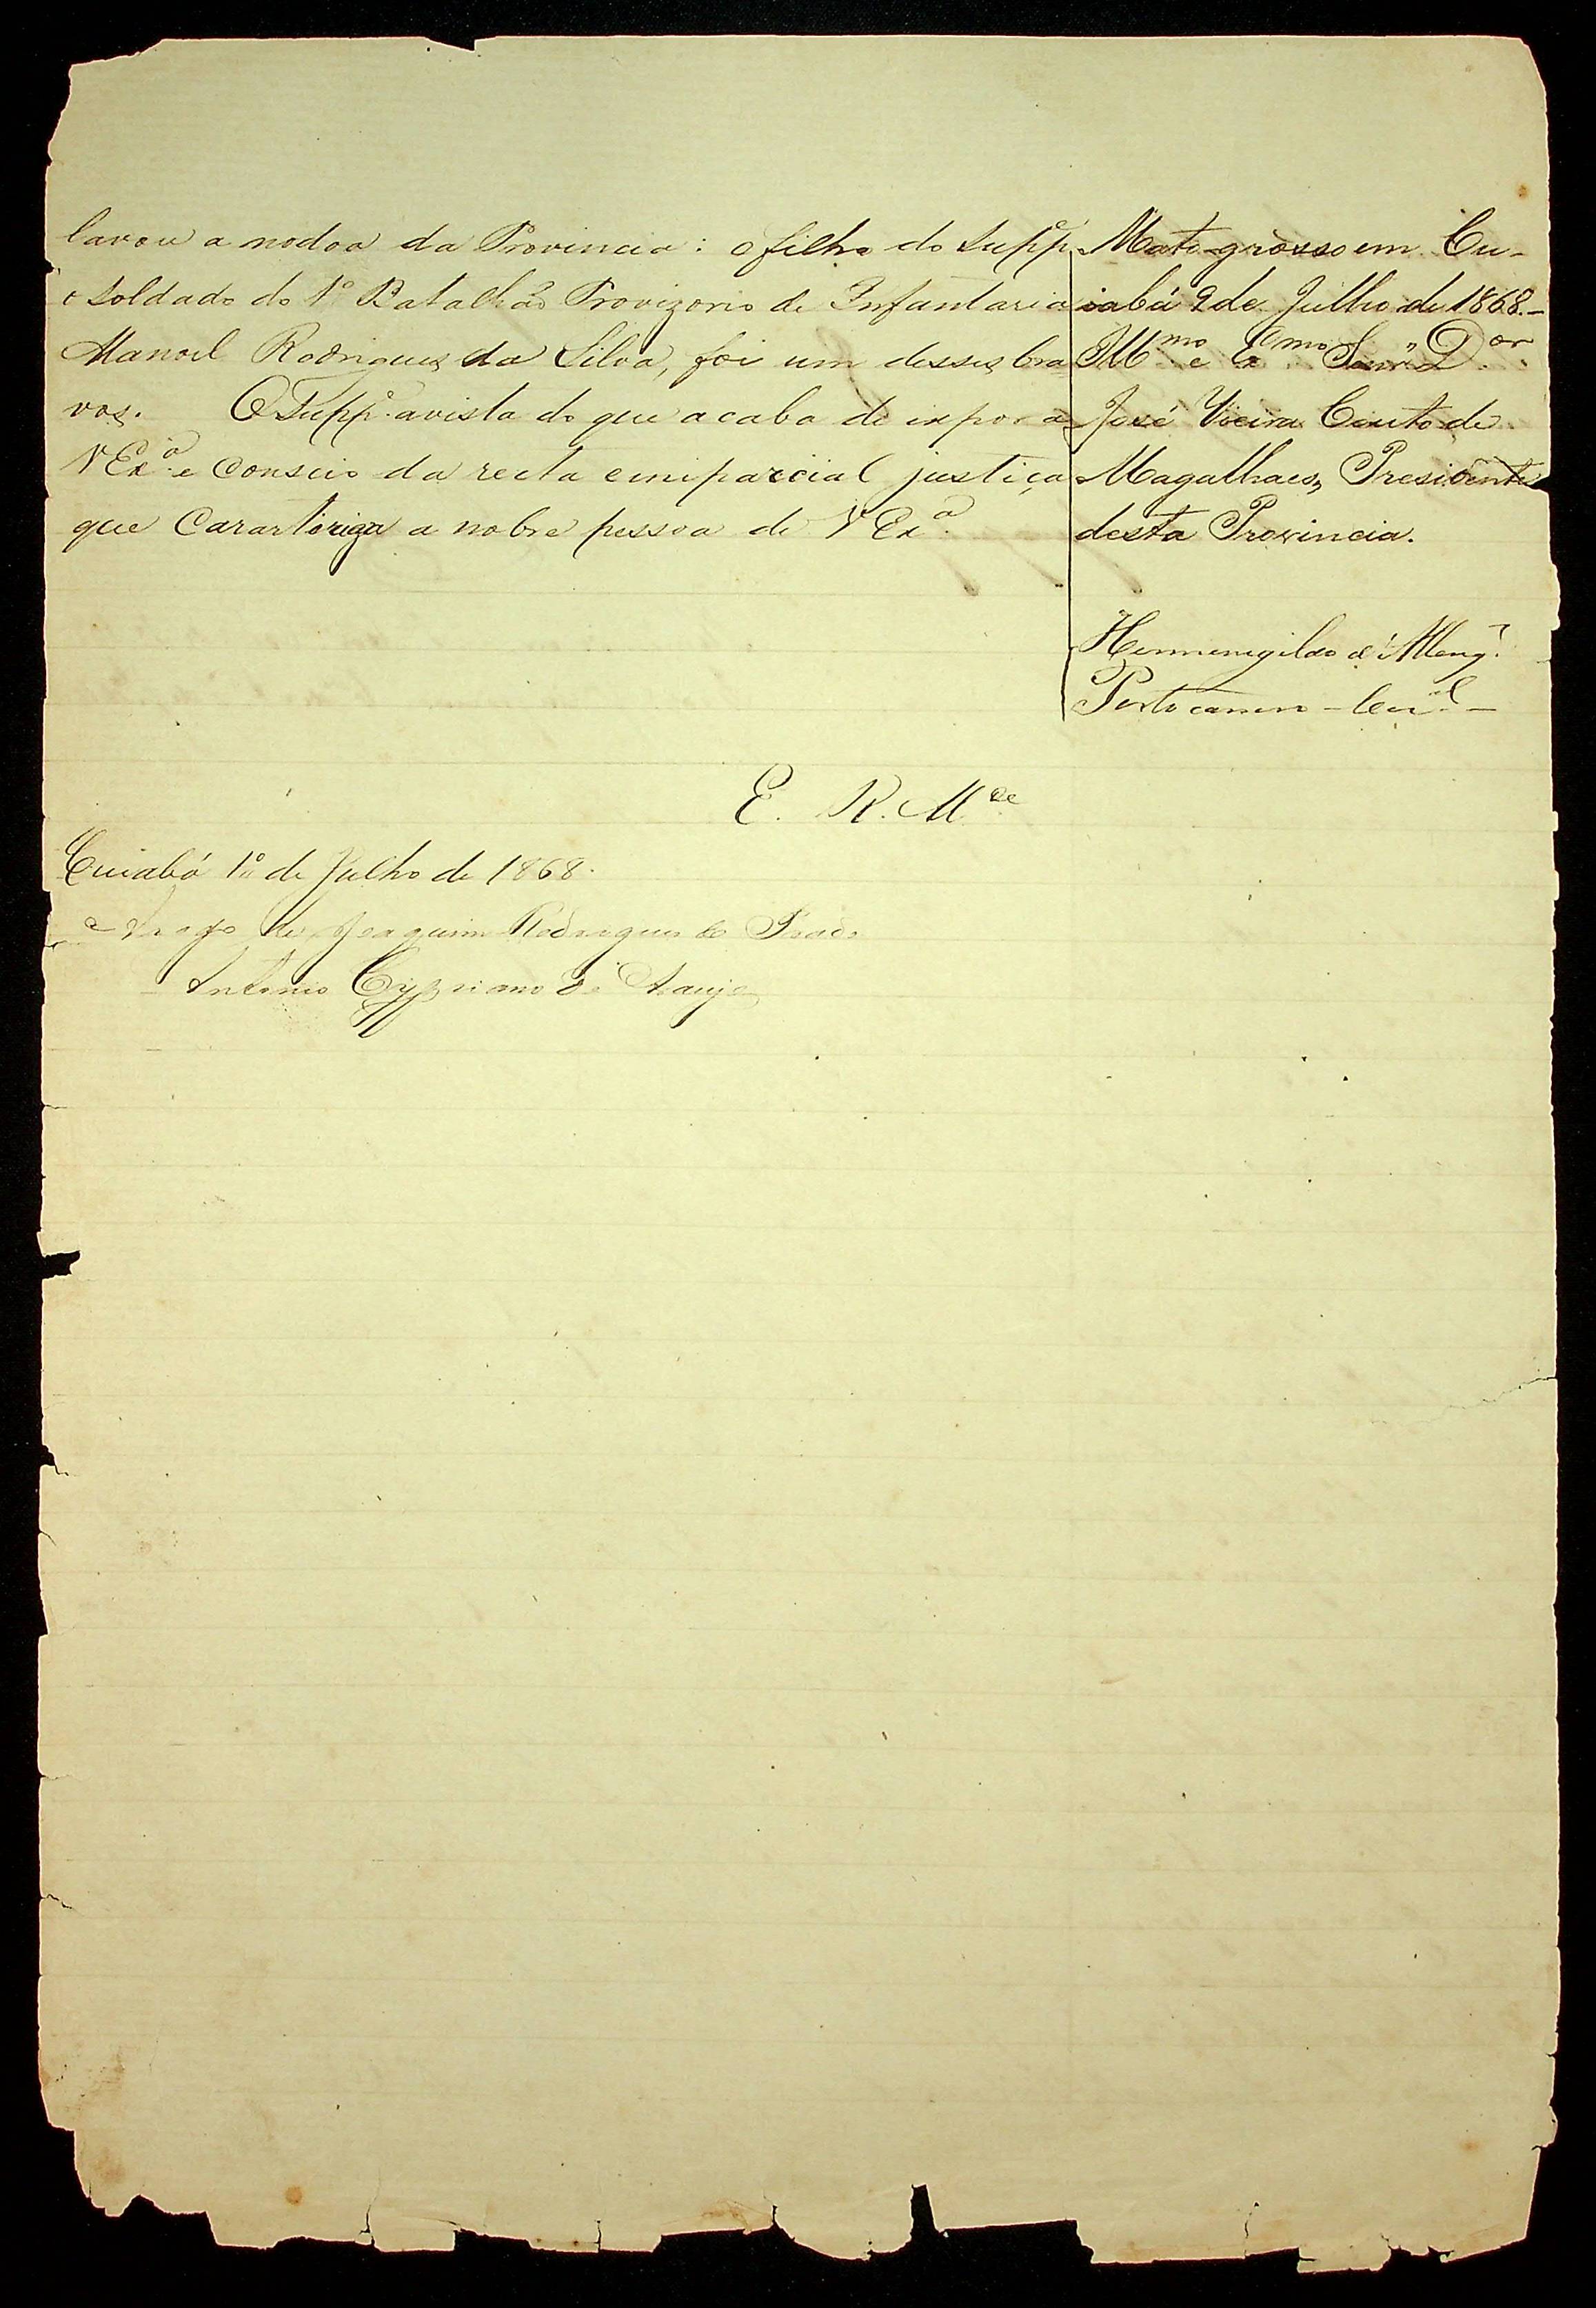 lavou a nodoa da Provincia: o filho do Suppe.
o Soldado do 1º Batalhão Provizorio de Infantaria
Manoel Rodrigues da Silva, foi um desses bra
vos. O Suppe. avista do que acaba de expor a
V Exª. e conscio da recta e imparcial justiça
que Cararteriza a nobre pessoa de V Exª.
Mato-grosso em Cu-
iabá 2 de Julho de 1868.-
Illmo e Exmo Senr. Dor
José Vieira Couto de
Magalhaes, Presidente
desta Provincia.
Hermenegildo d'Albuqe.
Portocarrero - Cel. -
E. R. Mce
Cuiabá 1º de Julho de 1868.
A rogo de Joaquim Rodrigues do Prado
Antonio Cypriano de Araujo